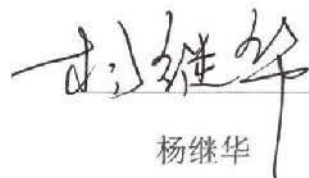 杨继华
杨继华